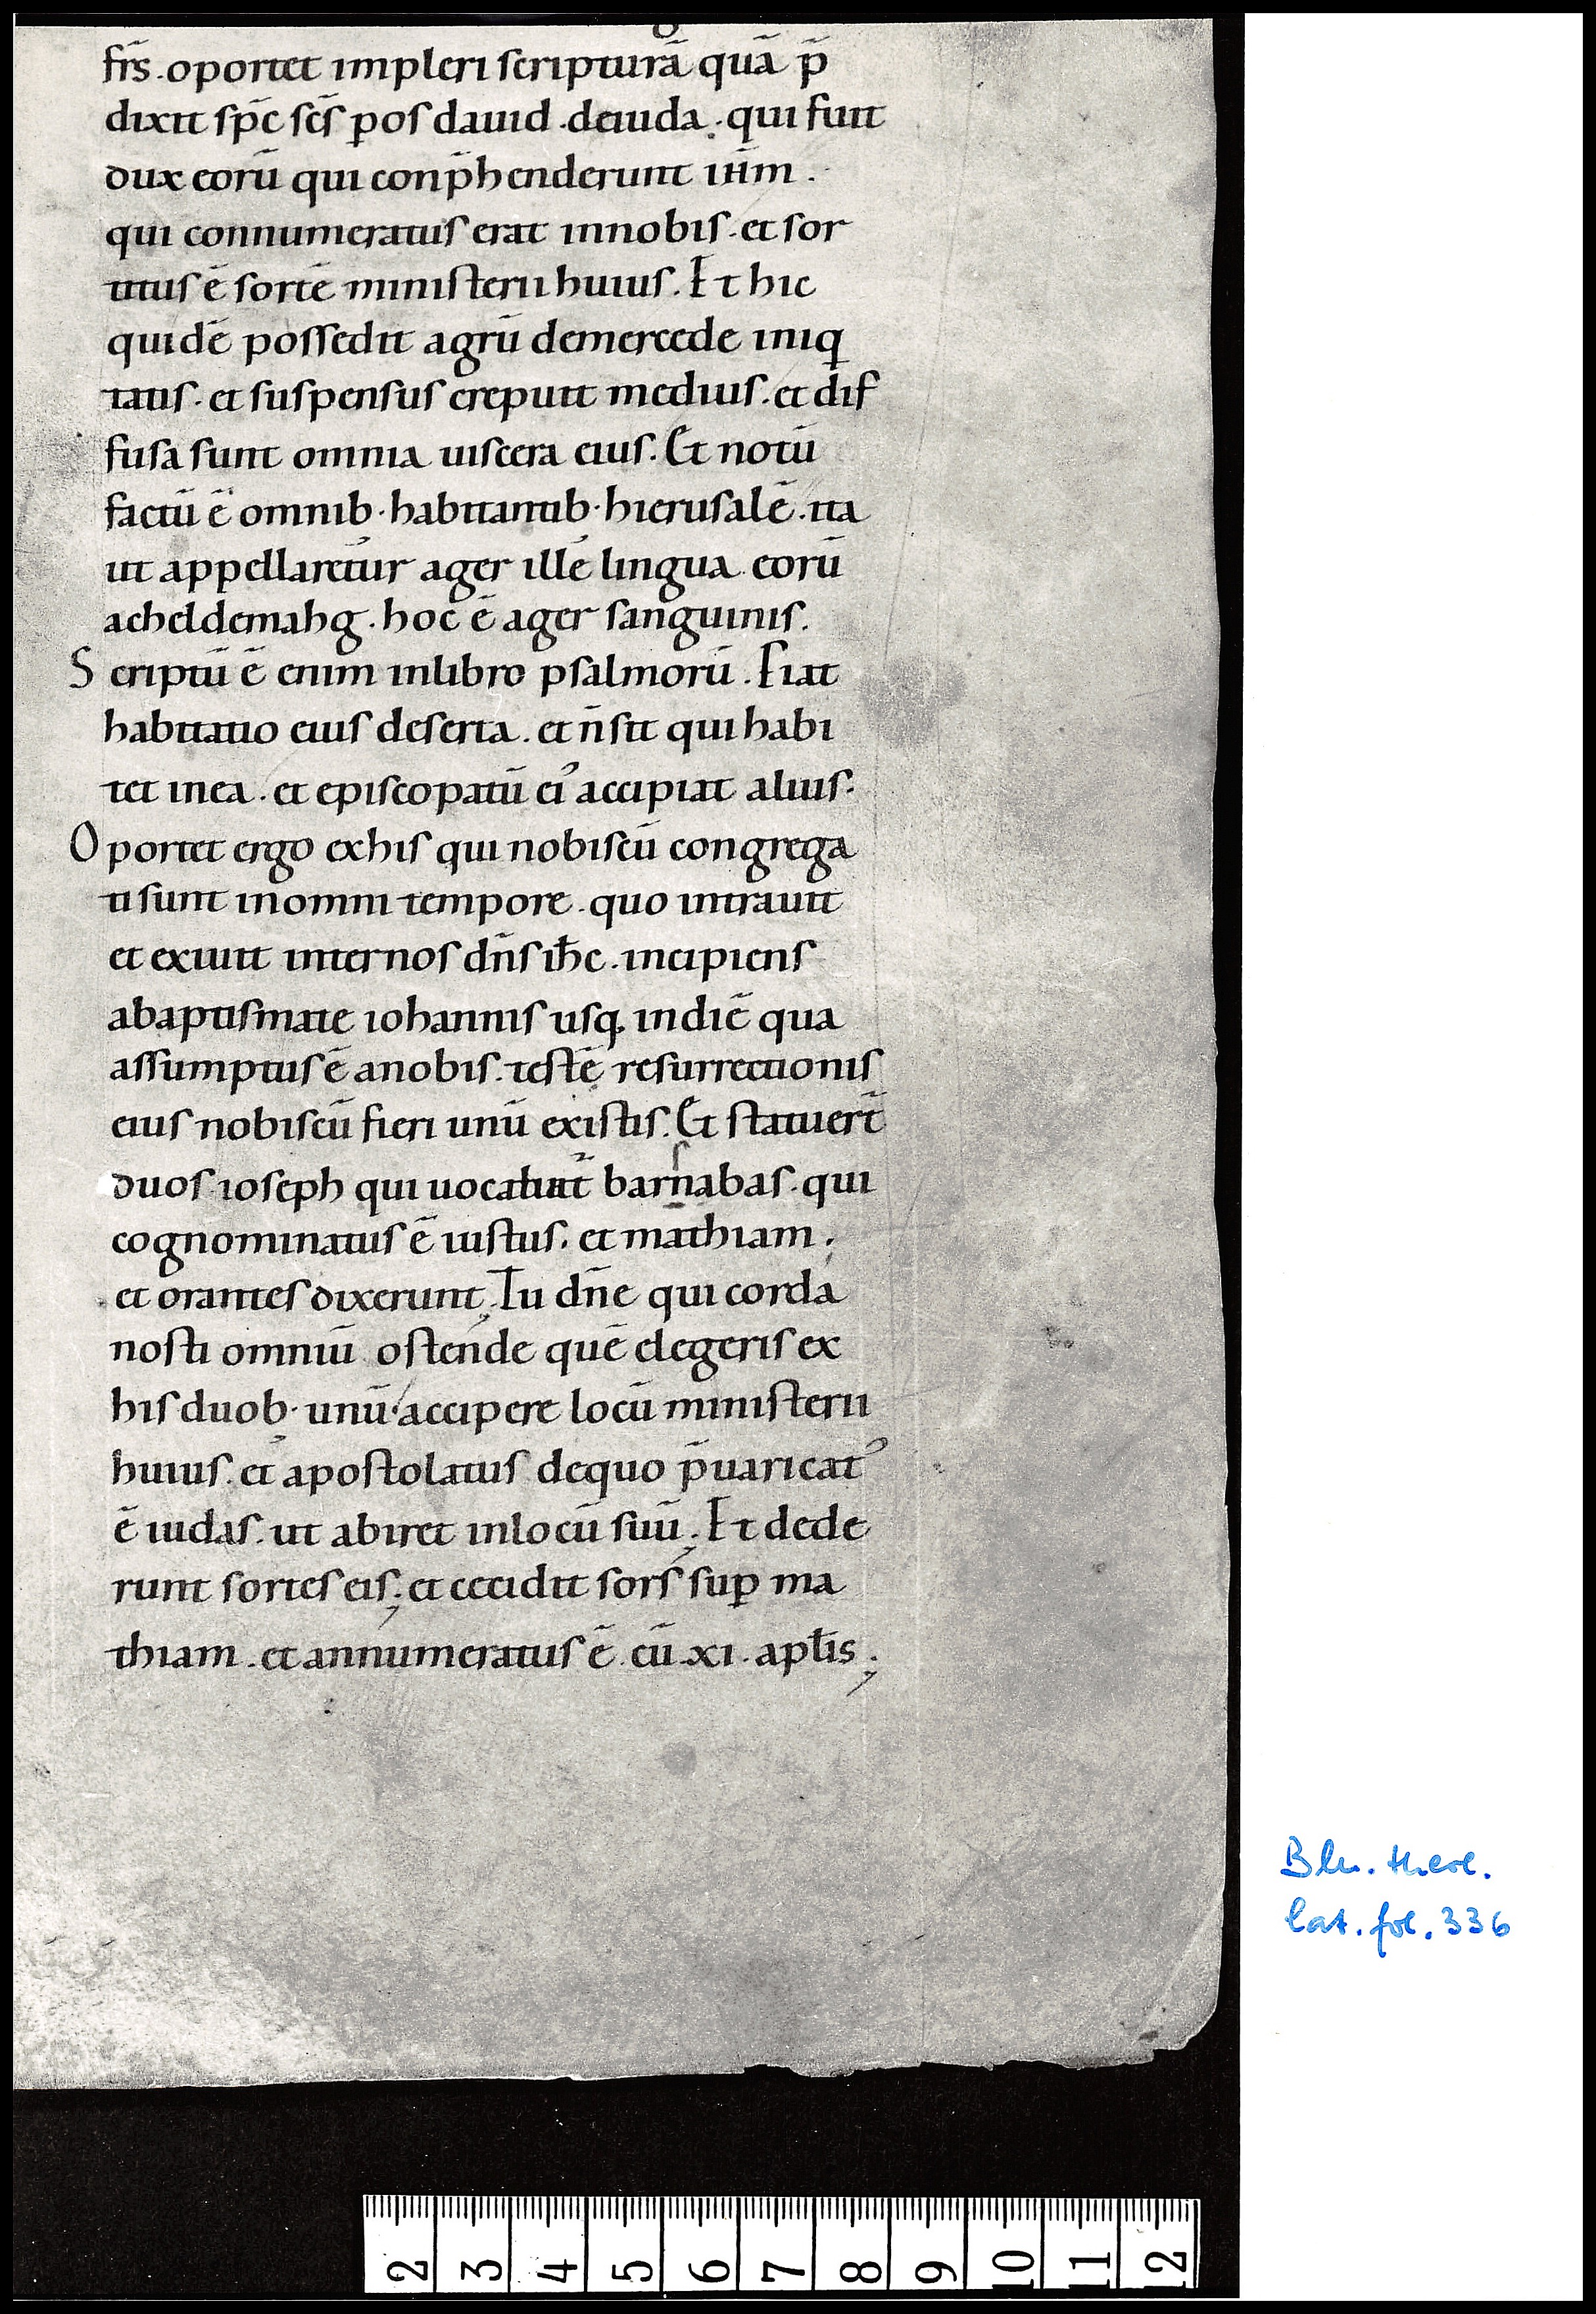 fr̄s. oportet impleri scripturā quā p̄
dixit sp̄c sc̄s ꝑ os dauid. deiuda. qui fuit
dux eorū qui conp̄henderunt ih̄m.
qui connumeratus erat innobis. et sor
titus ē sortē ministerii huius. Et hic
quidē possedit agrū demercede iniq
tatis. et suspensus crepuit medius. et dif
fusa sunt omnia uiscera eius. Et notū
factū ē omnib· habitantib· hierusalē. ita
ut appellaretur ager ille lingua eorū
acheldemahg. hoc ē ager sanguinis.
Scriptū ē enim inlibro psalmorū. Fiat
habitatio eius deserta. et n̄ sit qui habi
tet inea. et episcopatū ei᾽ accipiat alius.
Oportet ergo exhis qui nobiscū congrega
ti sunt inomni tempore. quo intrauit
et exiuit internos dn̄s ih̄c. incipiens
abaptismate iohannis usq· indiē qua
assumptus ē anobis. testē resurrectionis
eius nobiscū fieri unū existis. Et statuer̄t
duos ioseph qui uocabat᷑ barnabas. qui
cognominatus ē iustus. et mathiam.
et orantes dixerunt; Tu dn̄e qui corda
nosti omniū ostende quē elegeris ex
his duob· unū· accipere locū ministerii
huius. et apostolatus dequo p̄uaricat᾽
ē iudas. ut abiret inlocū suū; Et dede
runt sortes eis; et cecidit sors suꝑ ma
thiam. et annumeratus ē. cū .xi. apl̄is;
Bln. theol.
lat. fol. 336
2 3 4 5 6 7 8 9 10 11 12